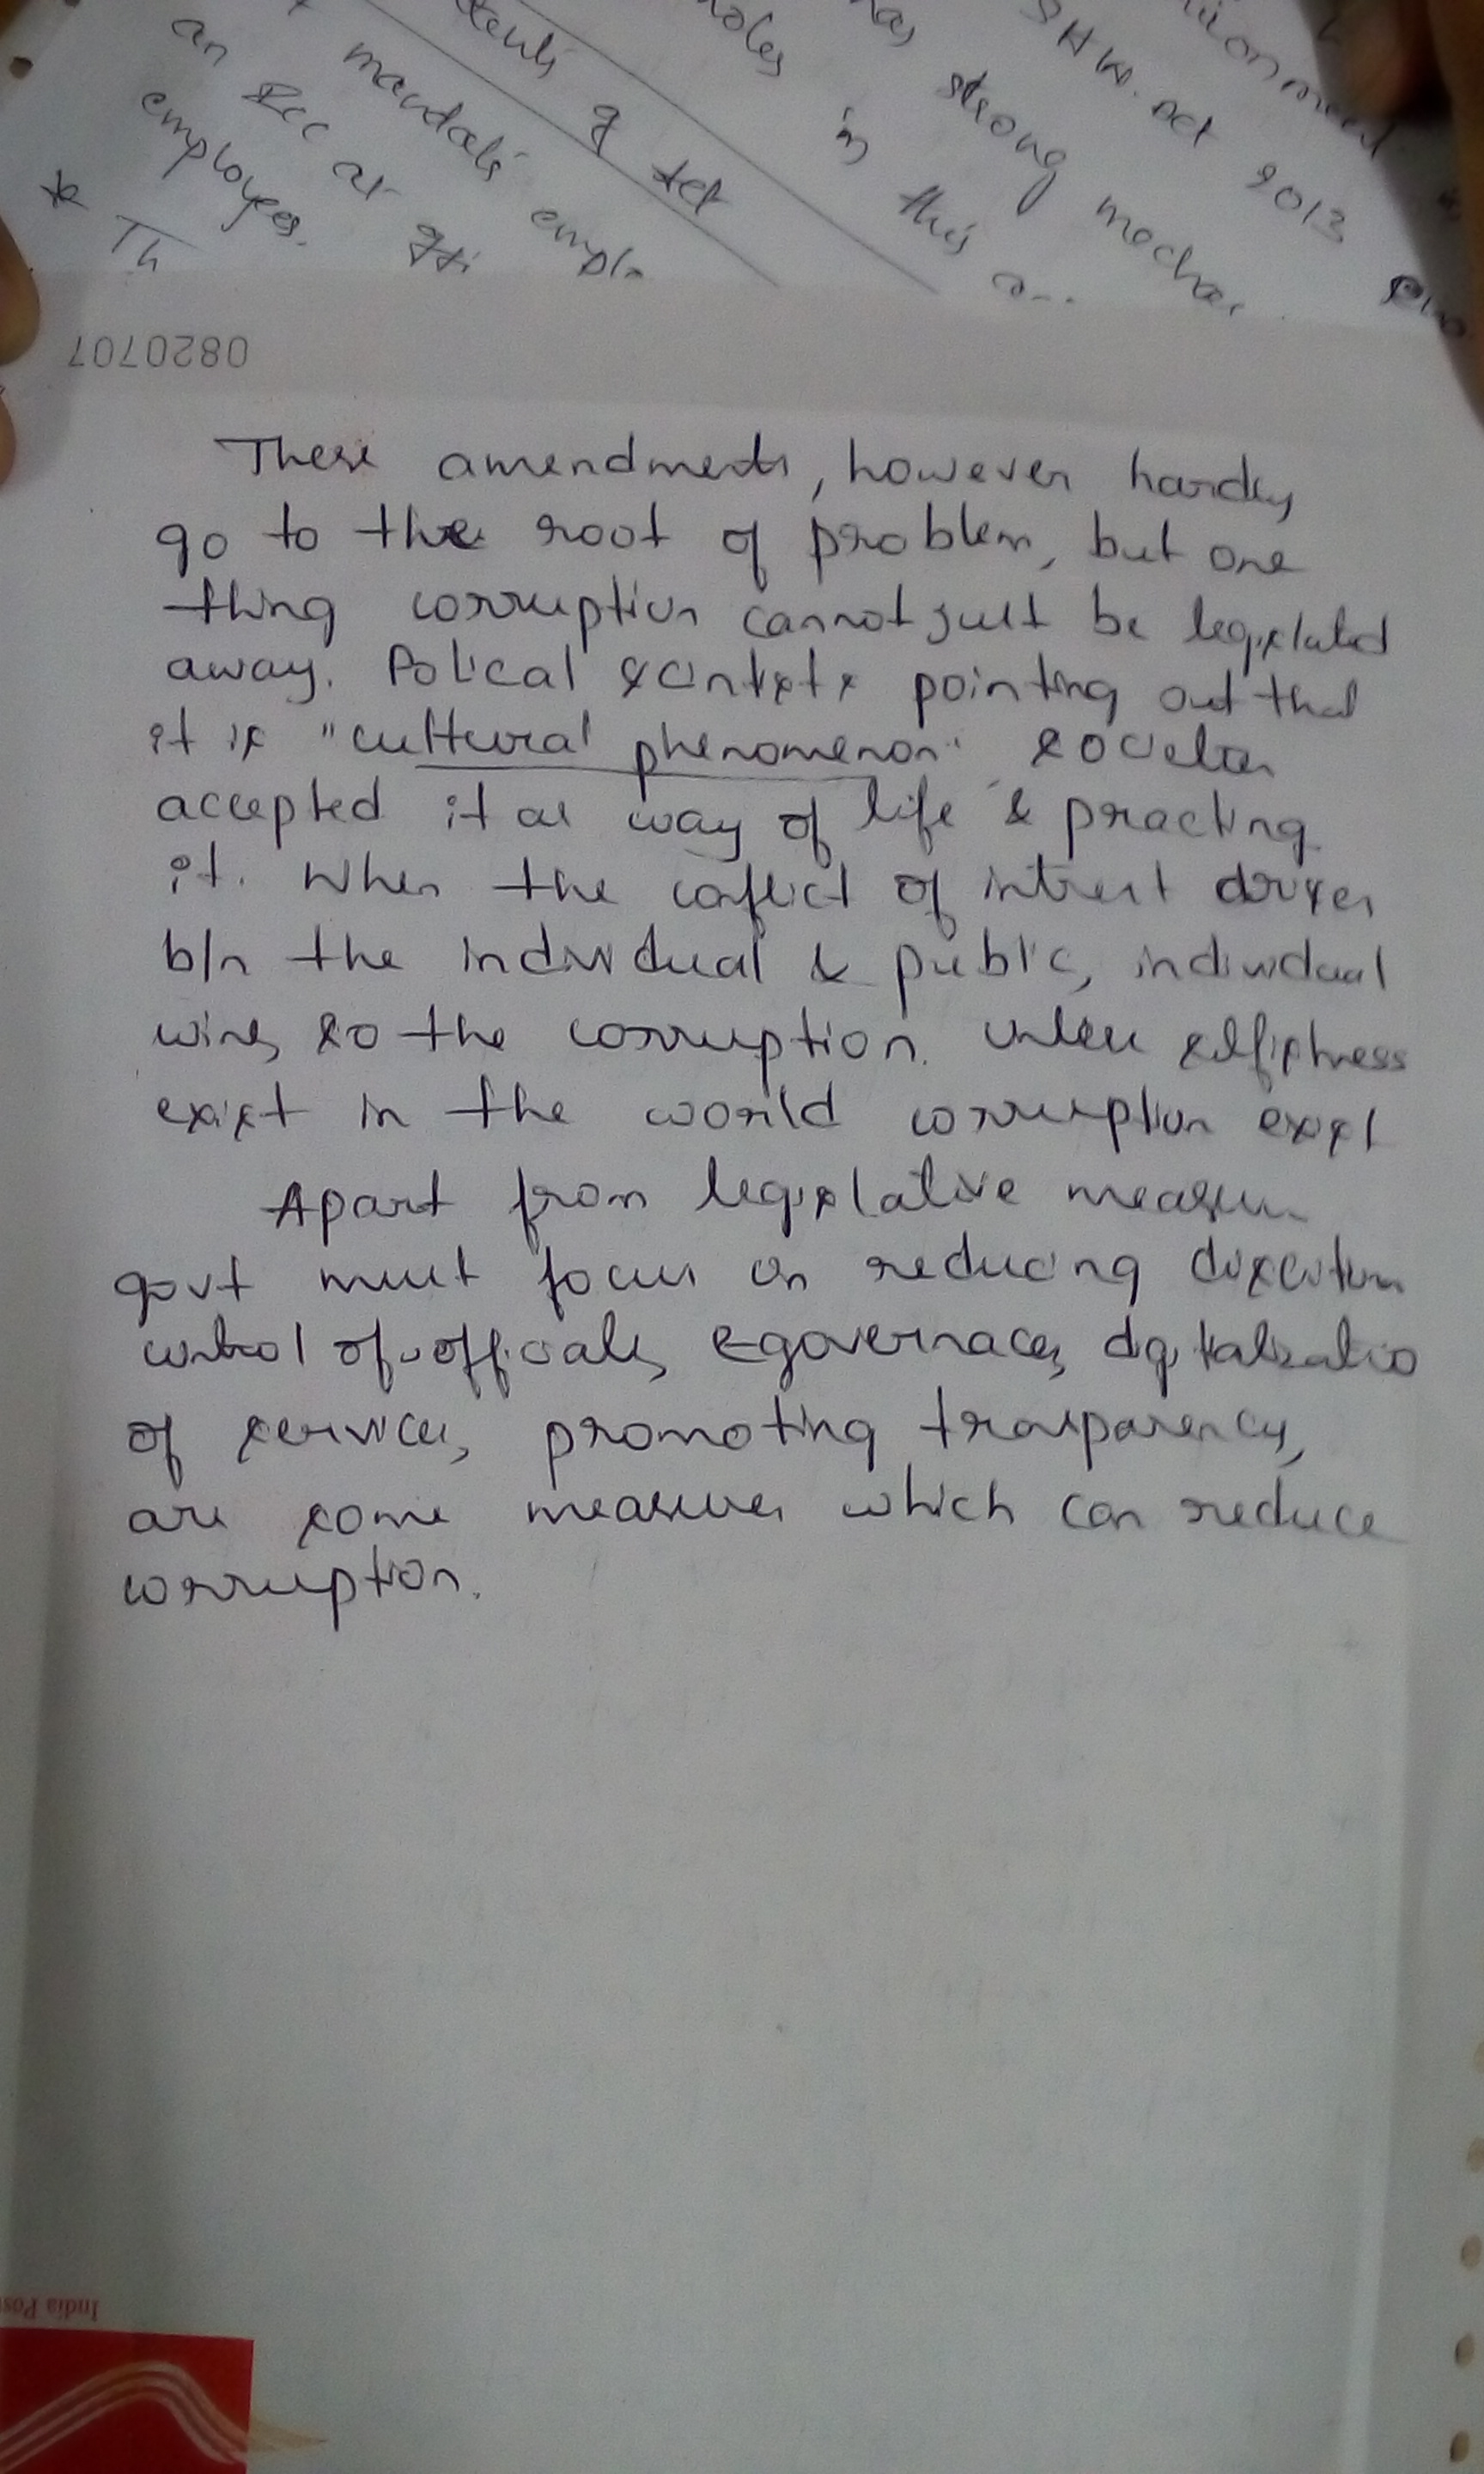 an Rec at
mandate empl
employees.
* Th
of
in this
has strong mechan
SHW. Act 2013
0820707
These amendments, however hardly
go to the root of problem, but one
thing corruption cannot just be legislated
away. Polical scintsts pointing out that
it is "cultural phenomenon" societer
accepted it as way of life & practing
it. When the conflict of intrest drives
b/n the individual & public, individual
wins, so the corruption. unless selfishness
exist in the world corruption exist
Apart from legislative measure
govt must focus on reducing
control of officials, e-governaces, digitalizatio
of services, promoting trasparency,
are some measures which can reduce
corruption.
India Post